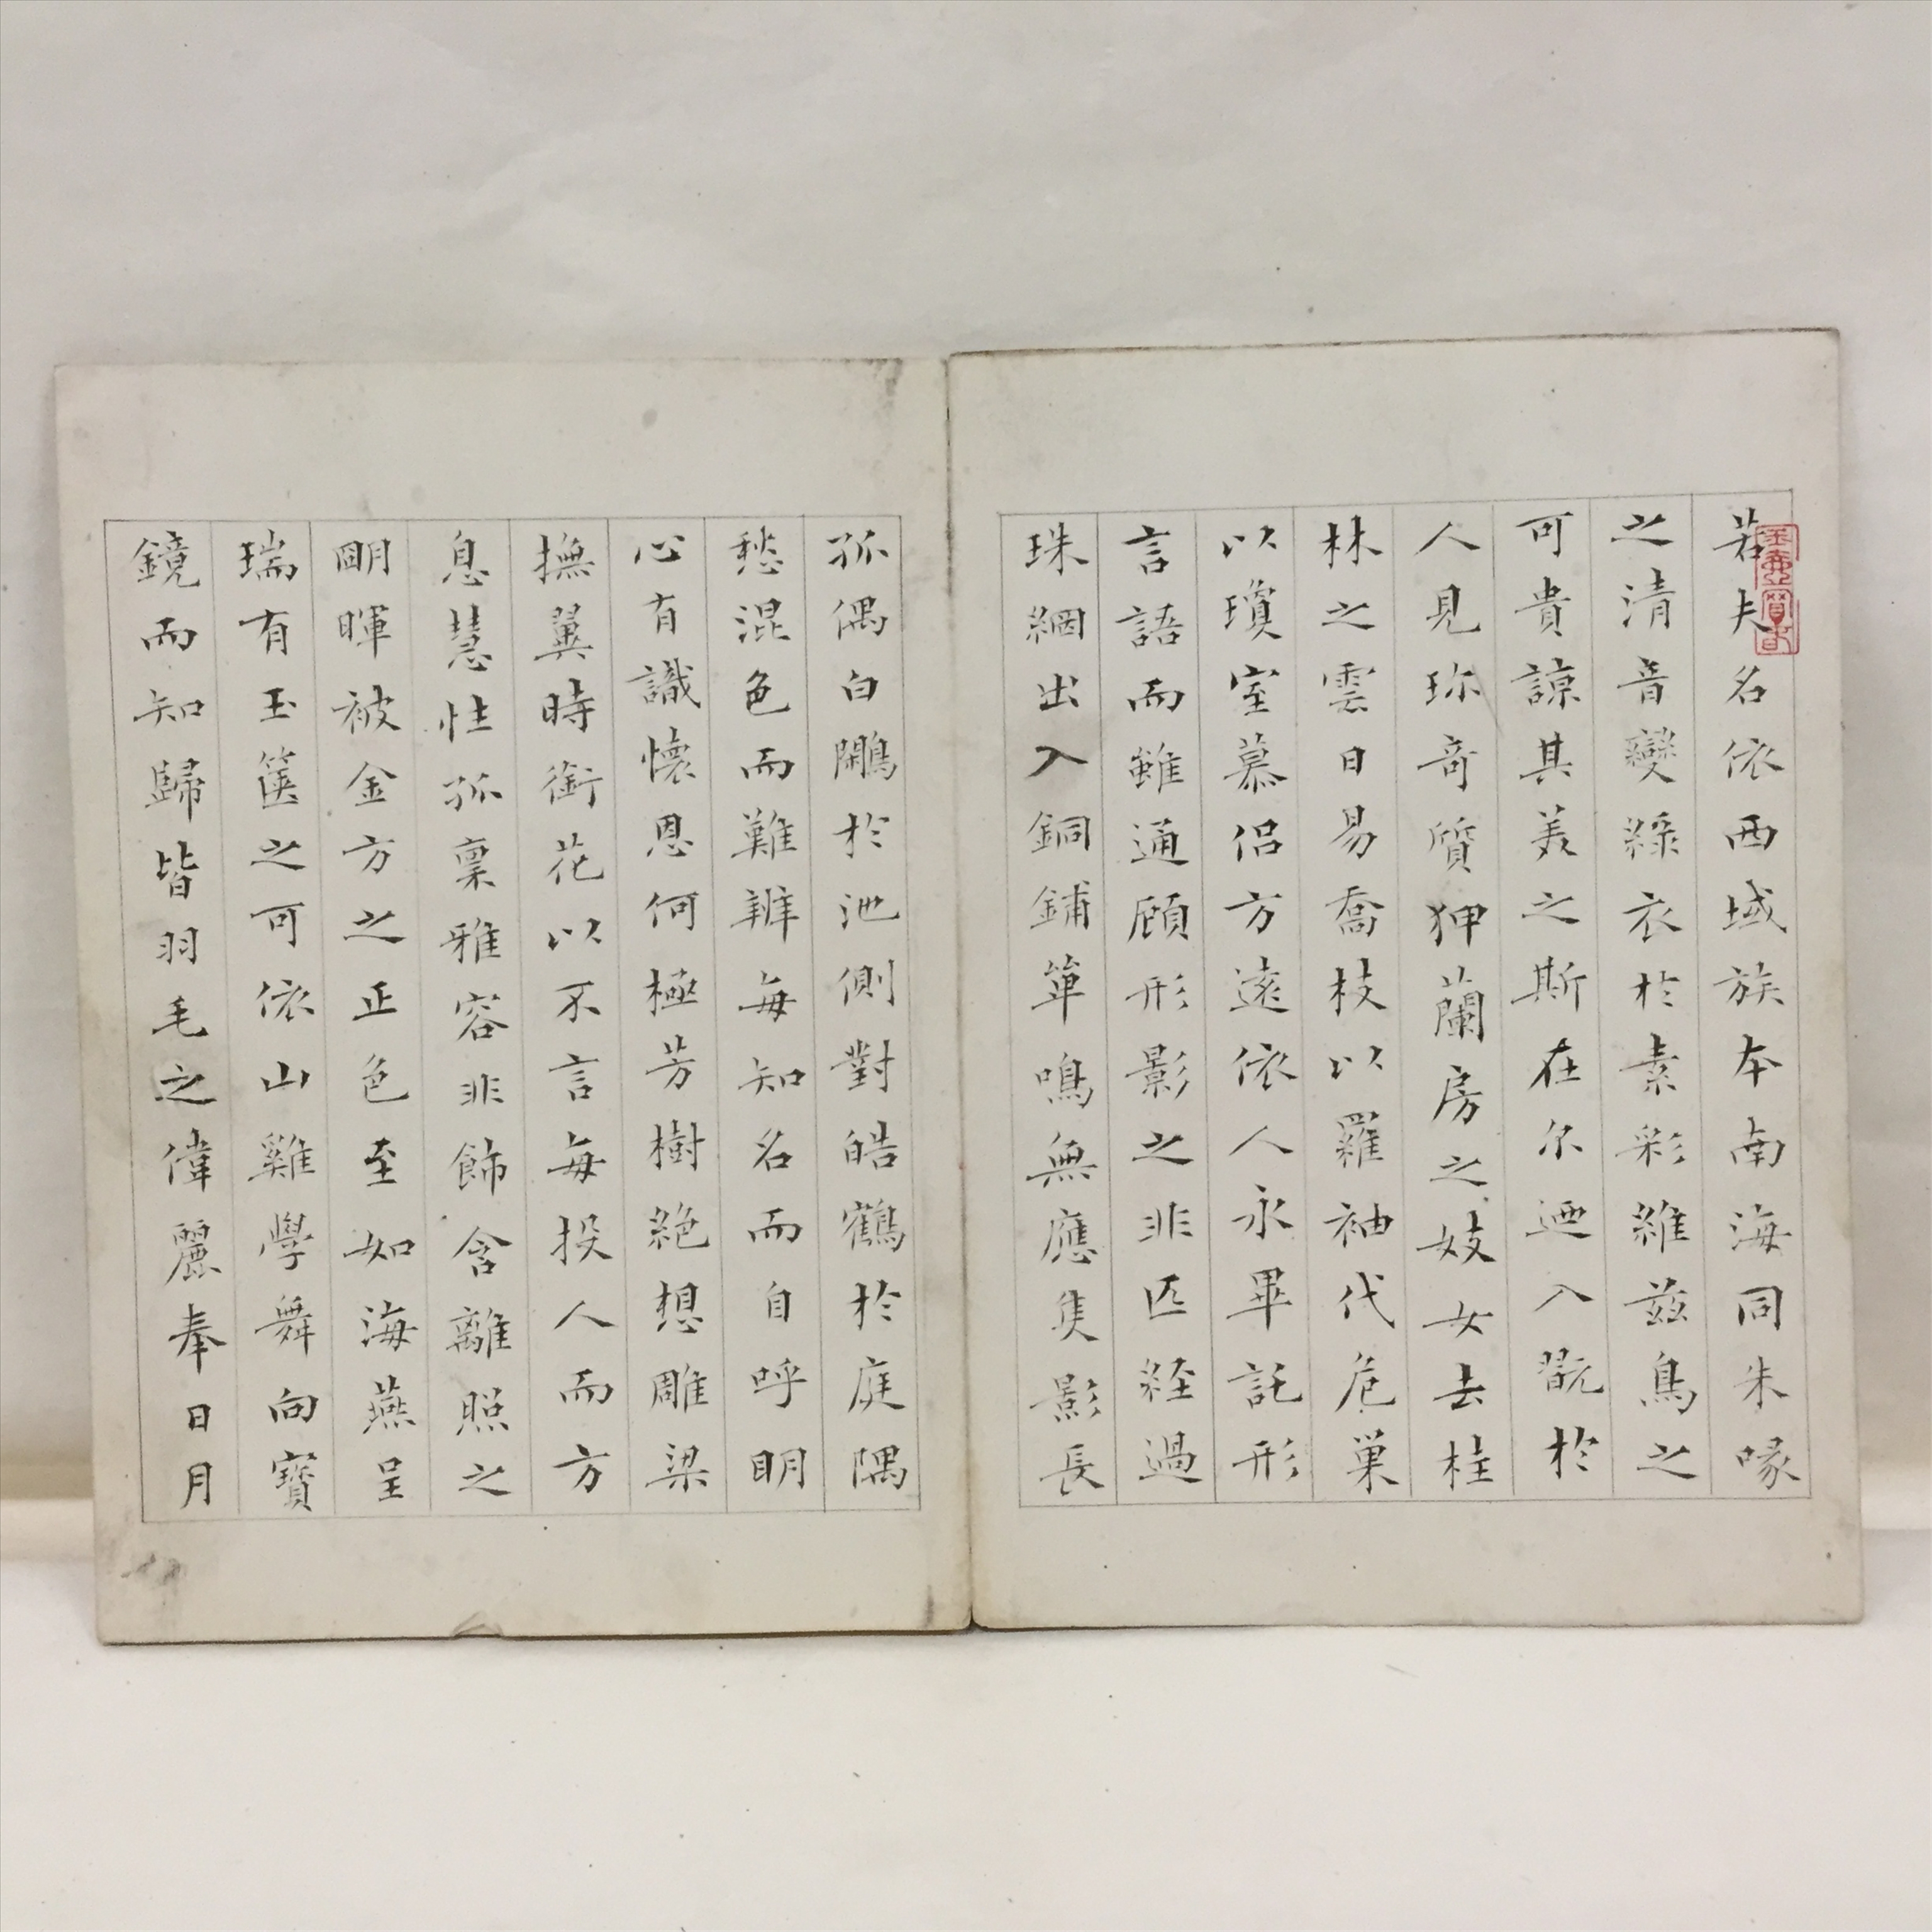 若夫名依西域族本南海同朱喙
之清音變綠衣於素彩維茲鳥之
可貴諒其美之斯在尔迺入翫於
人見珎奇質狎蘭房之妓女去桂
林之雲日易喬枝以羅袖代危巢
以瓊室慕侣方遠依人永畢託形
言語而雖通顧形影之非匹経過
珠網出入銅鋪單鳴無應隻影長
孤偶白鷴於池側對皓鶴於庭隅
愁混色而難辨每知名而自呼明
心有識懷恩何極芳樹絕想雕梁
撫翼時銜花以不言每投人而方
息慧性孤稟雅容非飾含離照之
明暉被金方之正色至如海燕呈
瑞有玉篋之可依山雞學舞向寶
鏡而知歸皆羽毛之偉麗奉日月